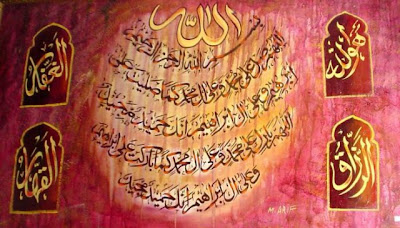 الله
بسم الله الرحمن الرحيم
اللهم صل على محمد وعلى ال محمد كما صليت على
ابراهيم وعلى ال ابراهيم انك حميد مجيد
اللهم بارك على محمد وعلى ال محمد كما باركت على ابراهيم
وعلى ال ابراهيم انك حميد مجيد
هو الله
الرزاق
الغفار
القهار
M ARIF